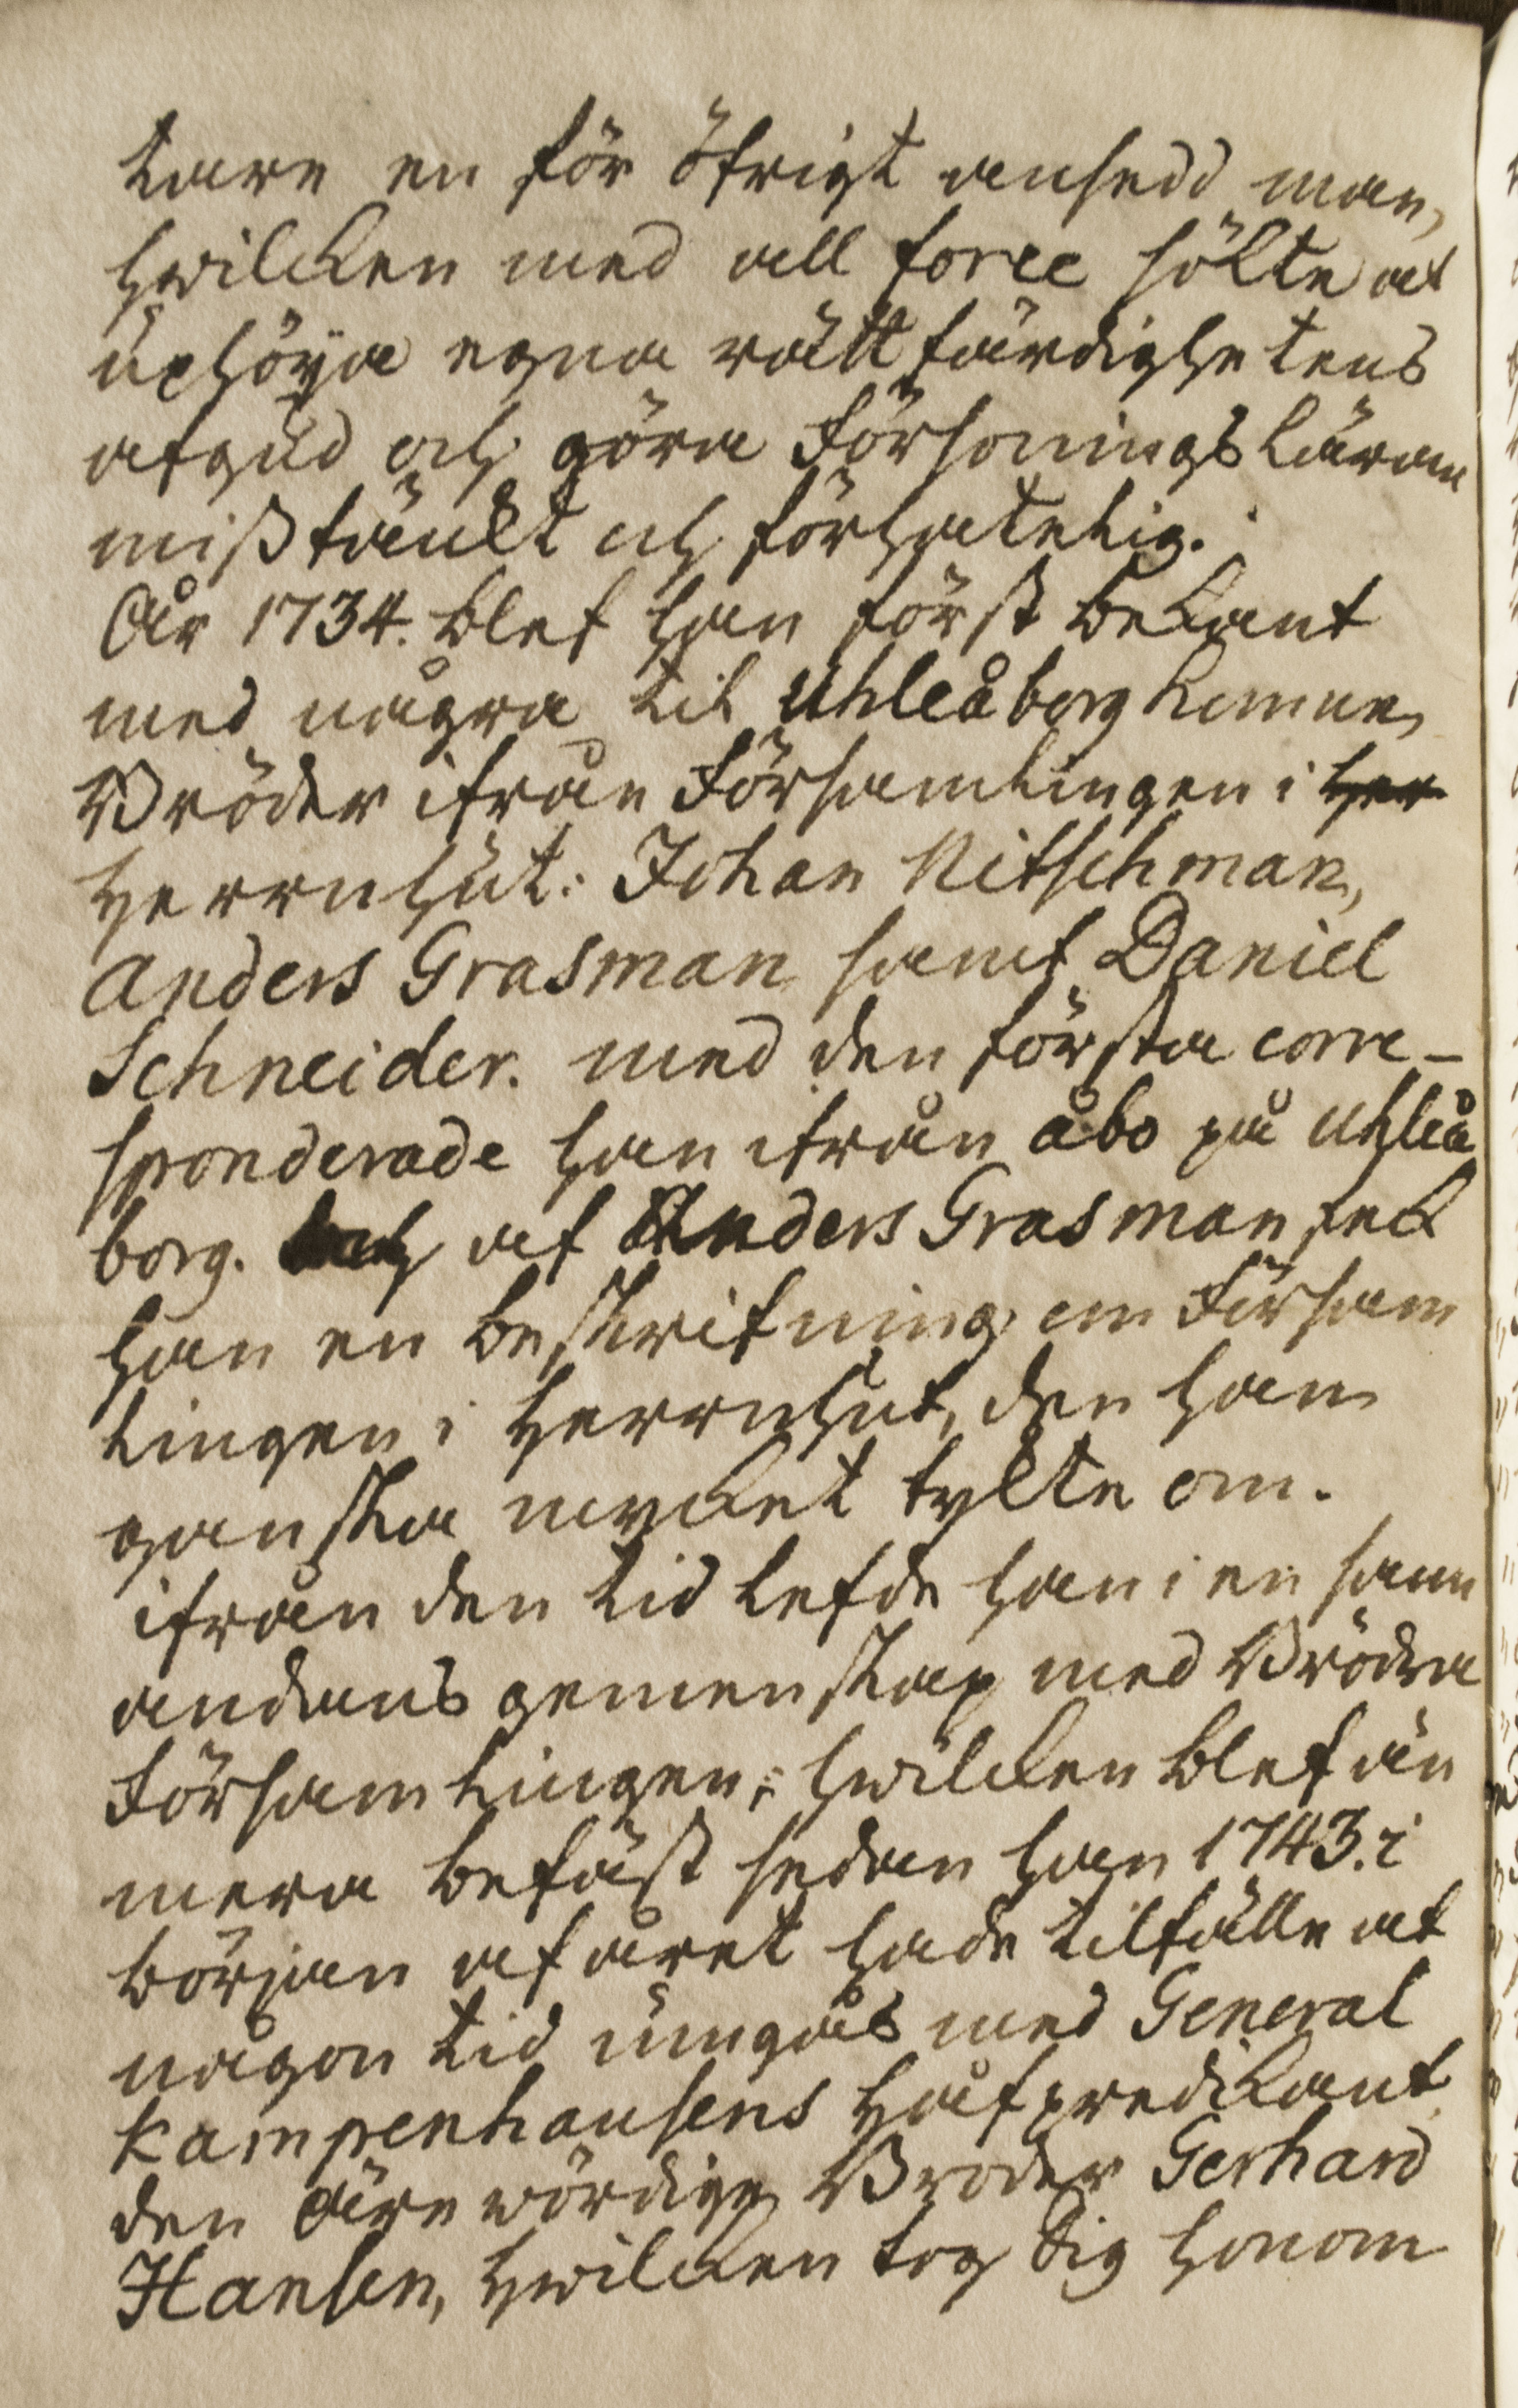 tare en för öfrigt ansedd man,
hwilcken med all force sökte at
uphöya egna rättfärdighetens
afgud och göra Försonings Läran
mißtänckt och förhatelig.
År 1734. blef han först bekant
med några til Uhleåborg komne
Bröder ifrån Församlingen i Her
Herrnhut: Johan Nitschman,
Anders Grasman samt Daniel
Schneider. med den första corre-
sponderade han ifrån åbo på Uhleå
borg. och af Anders Grasman feck
han en beskrifning om Försam
lingen i Herrnhut, den han
ganska mycket tykte om.
ifrån den tid lefde han i en sann
andans gemenskap med Brödra
Församlingen; hwilcken blef än
mera befäst sedan han 1743. i
början af året hade tilfälle at
någon tid umgås med General
Kampenhausens Håfpredikant
den ärewördige Broder Gerhard
Hansen, hwilcken tog sig honom